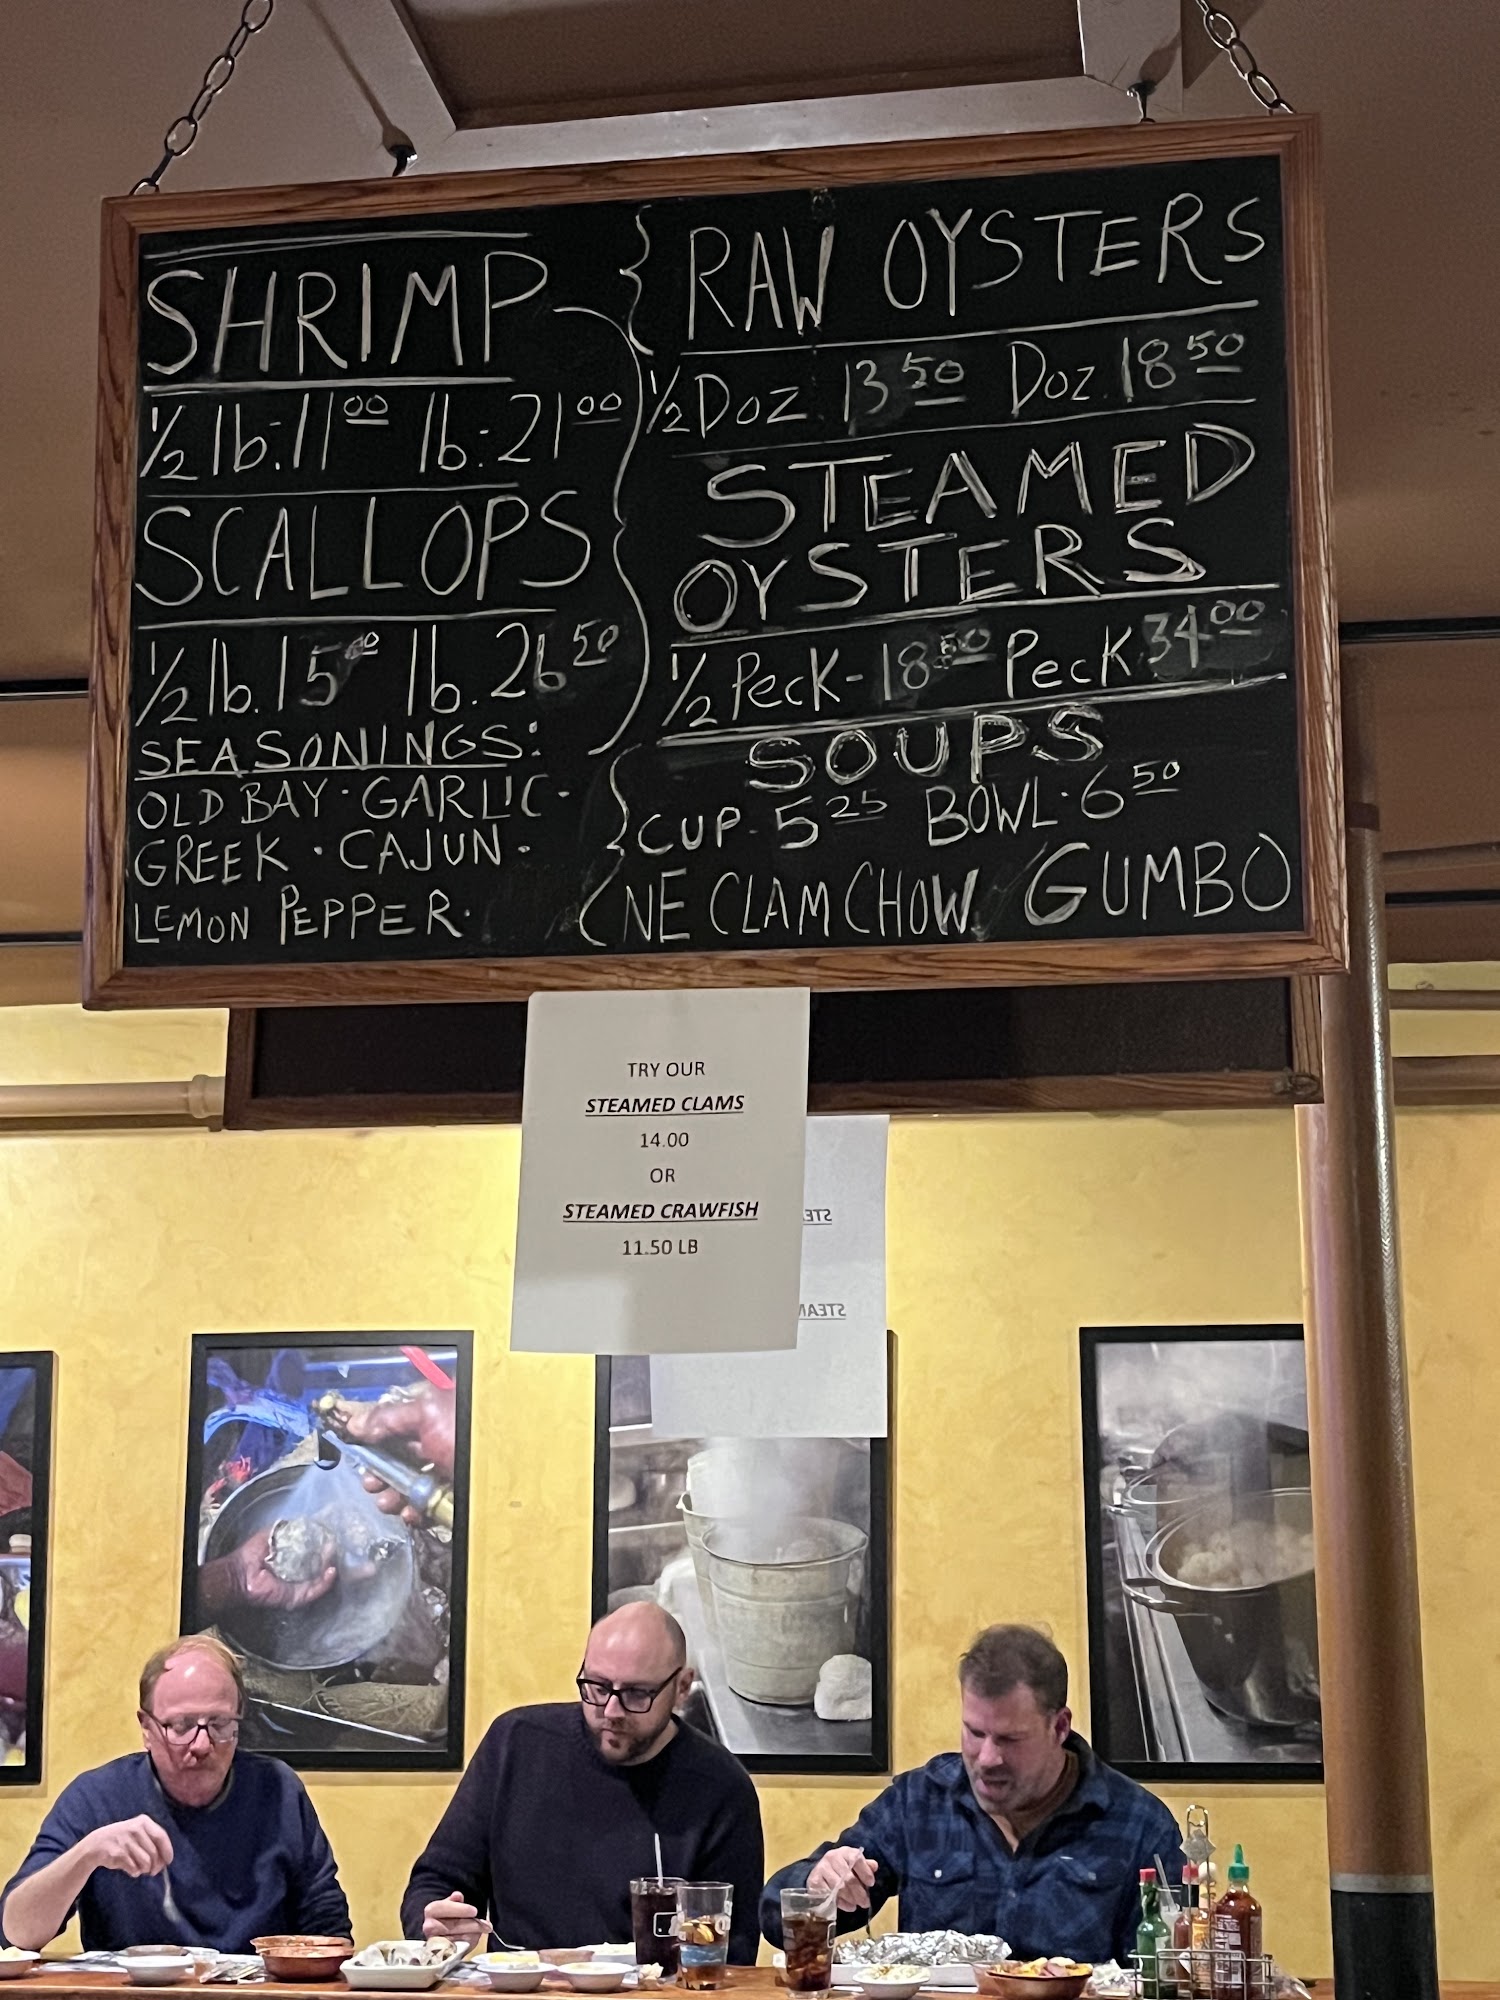 SHRIMP
1/2 lb. 11 00 lb. 21 00
SCALLOPS
1/2 lb. 15 00 lb. 26 50
SEASONINGS:
OLD BAY · GARLIC ·
GREEK · CAJUN ·
LEMON PEPPER ·
RAW OYSTERS
1/2 Doz. 13 50 Doz. 18 50
STEAMED
OYSTERS
1/2 Peck - 18 50 Peck 34 00
SOUPS
CUP - 5 25 BOWL · 6 50
NE CLAM CHOW / GUMBO
TRY OUR
STEAMED CLAMS
14.00
OR
STEAMED CRAWFISH
11.50 LB